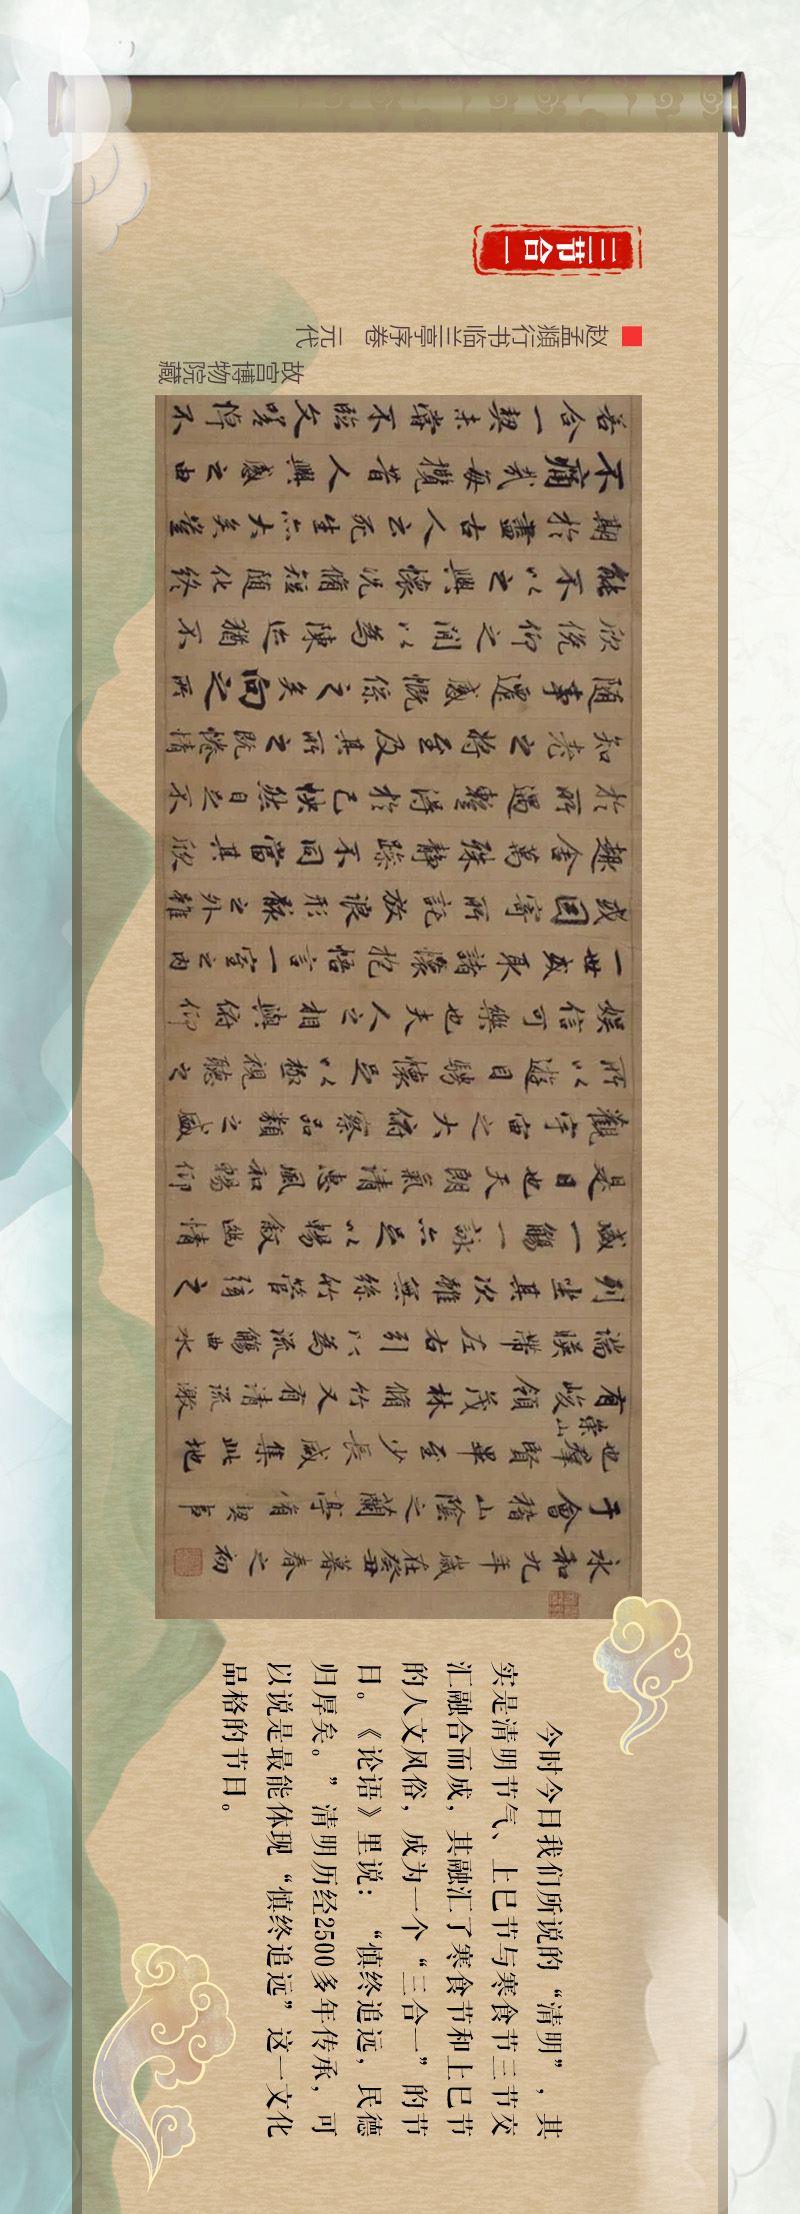 三节合一
赵孟頫行书临兰亭序卷 元代
故宫博物院藏
永和九年歲在癸丑暮春之初
于會稽山陰之蘭亭脩稧事
也羣賢畢至少長咸集此地
有崇山峻領茂林脩竹又有清流激
湍暎帶左右引以為流觴曲水
列坐其次雖無絲竹管弦之
盛一觴一詠亦足以暢敘幽情
是日也天朗氣清惠風和暢仰
觀宇宙之大俯察品類之盛
所以遊目騁懷足以極視聽之
娛信可樂也夫人之相與俯仰
一世或取諸懷抱悟言一室之內
或因寄所託放浪形骸之外雖
趣舍萬殊静躁不同當其欣
於所遇暫得於己怏然自足不
知老之將至及其所之既惓情
随事遷感慨係之矣向之所
欣俛仰之閒以為陳迹猶不
能不以之興懷況脩短随化終
期於盡古人云死生亦大矣豈
不痛哉每攬昔人興感之由
若合一契未嘗不臨文嗟悼不
今时今日我们所说的“清明”，其
实是清明节气、上巳节与寒食节三节交
汇融合而成，其融汇了寒食节和上巳节
的人文风俗，成为一个“三合一”的节
日。《论语》里说：“慎终追远，民德
归厚矣。”清明历经2500多年传承，可
以说是最能体现“慎终追远”这一文化
品格的节日。